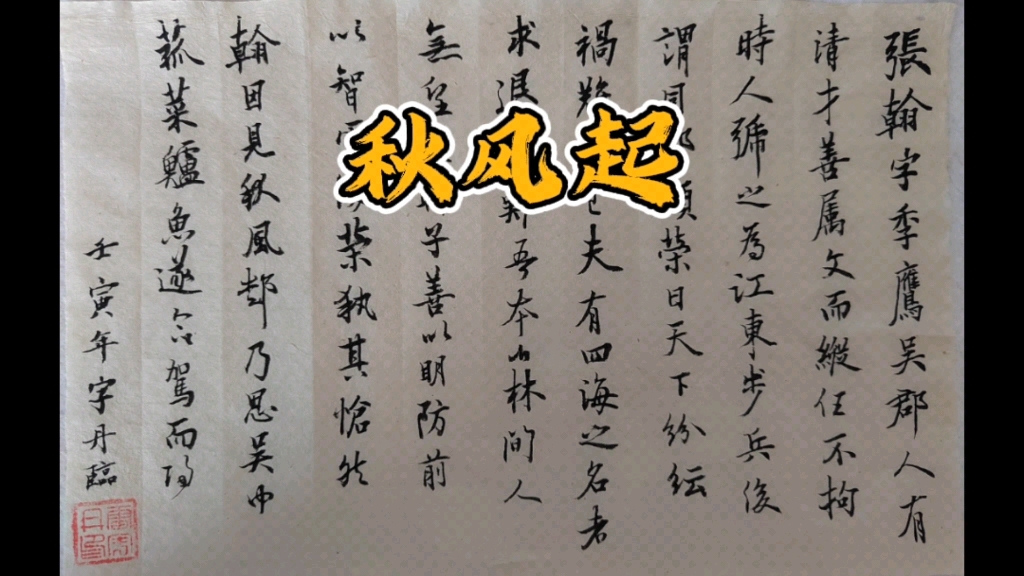 秋风起
張翰字季鷹吳郡人有
清才善属文而縱任不拘
時人號之為江東步兵後
謂同榮曰天下紛紜
禍夫有四海之名者
求退吾本山林間人
無望子善以明防前
以智榮執其愴然
翰因見秋風起乃思吳中
菰菜鱸魚遂命駕而歸
壬寅年字丹臨